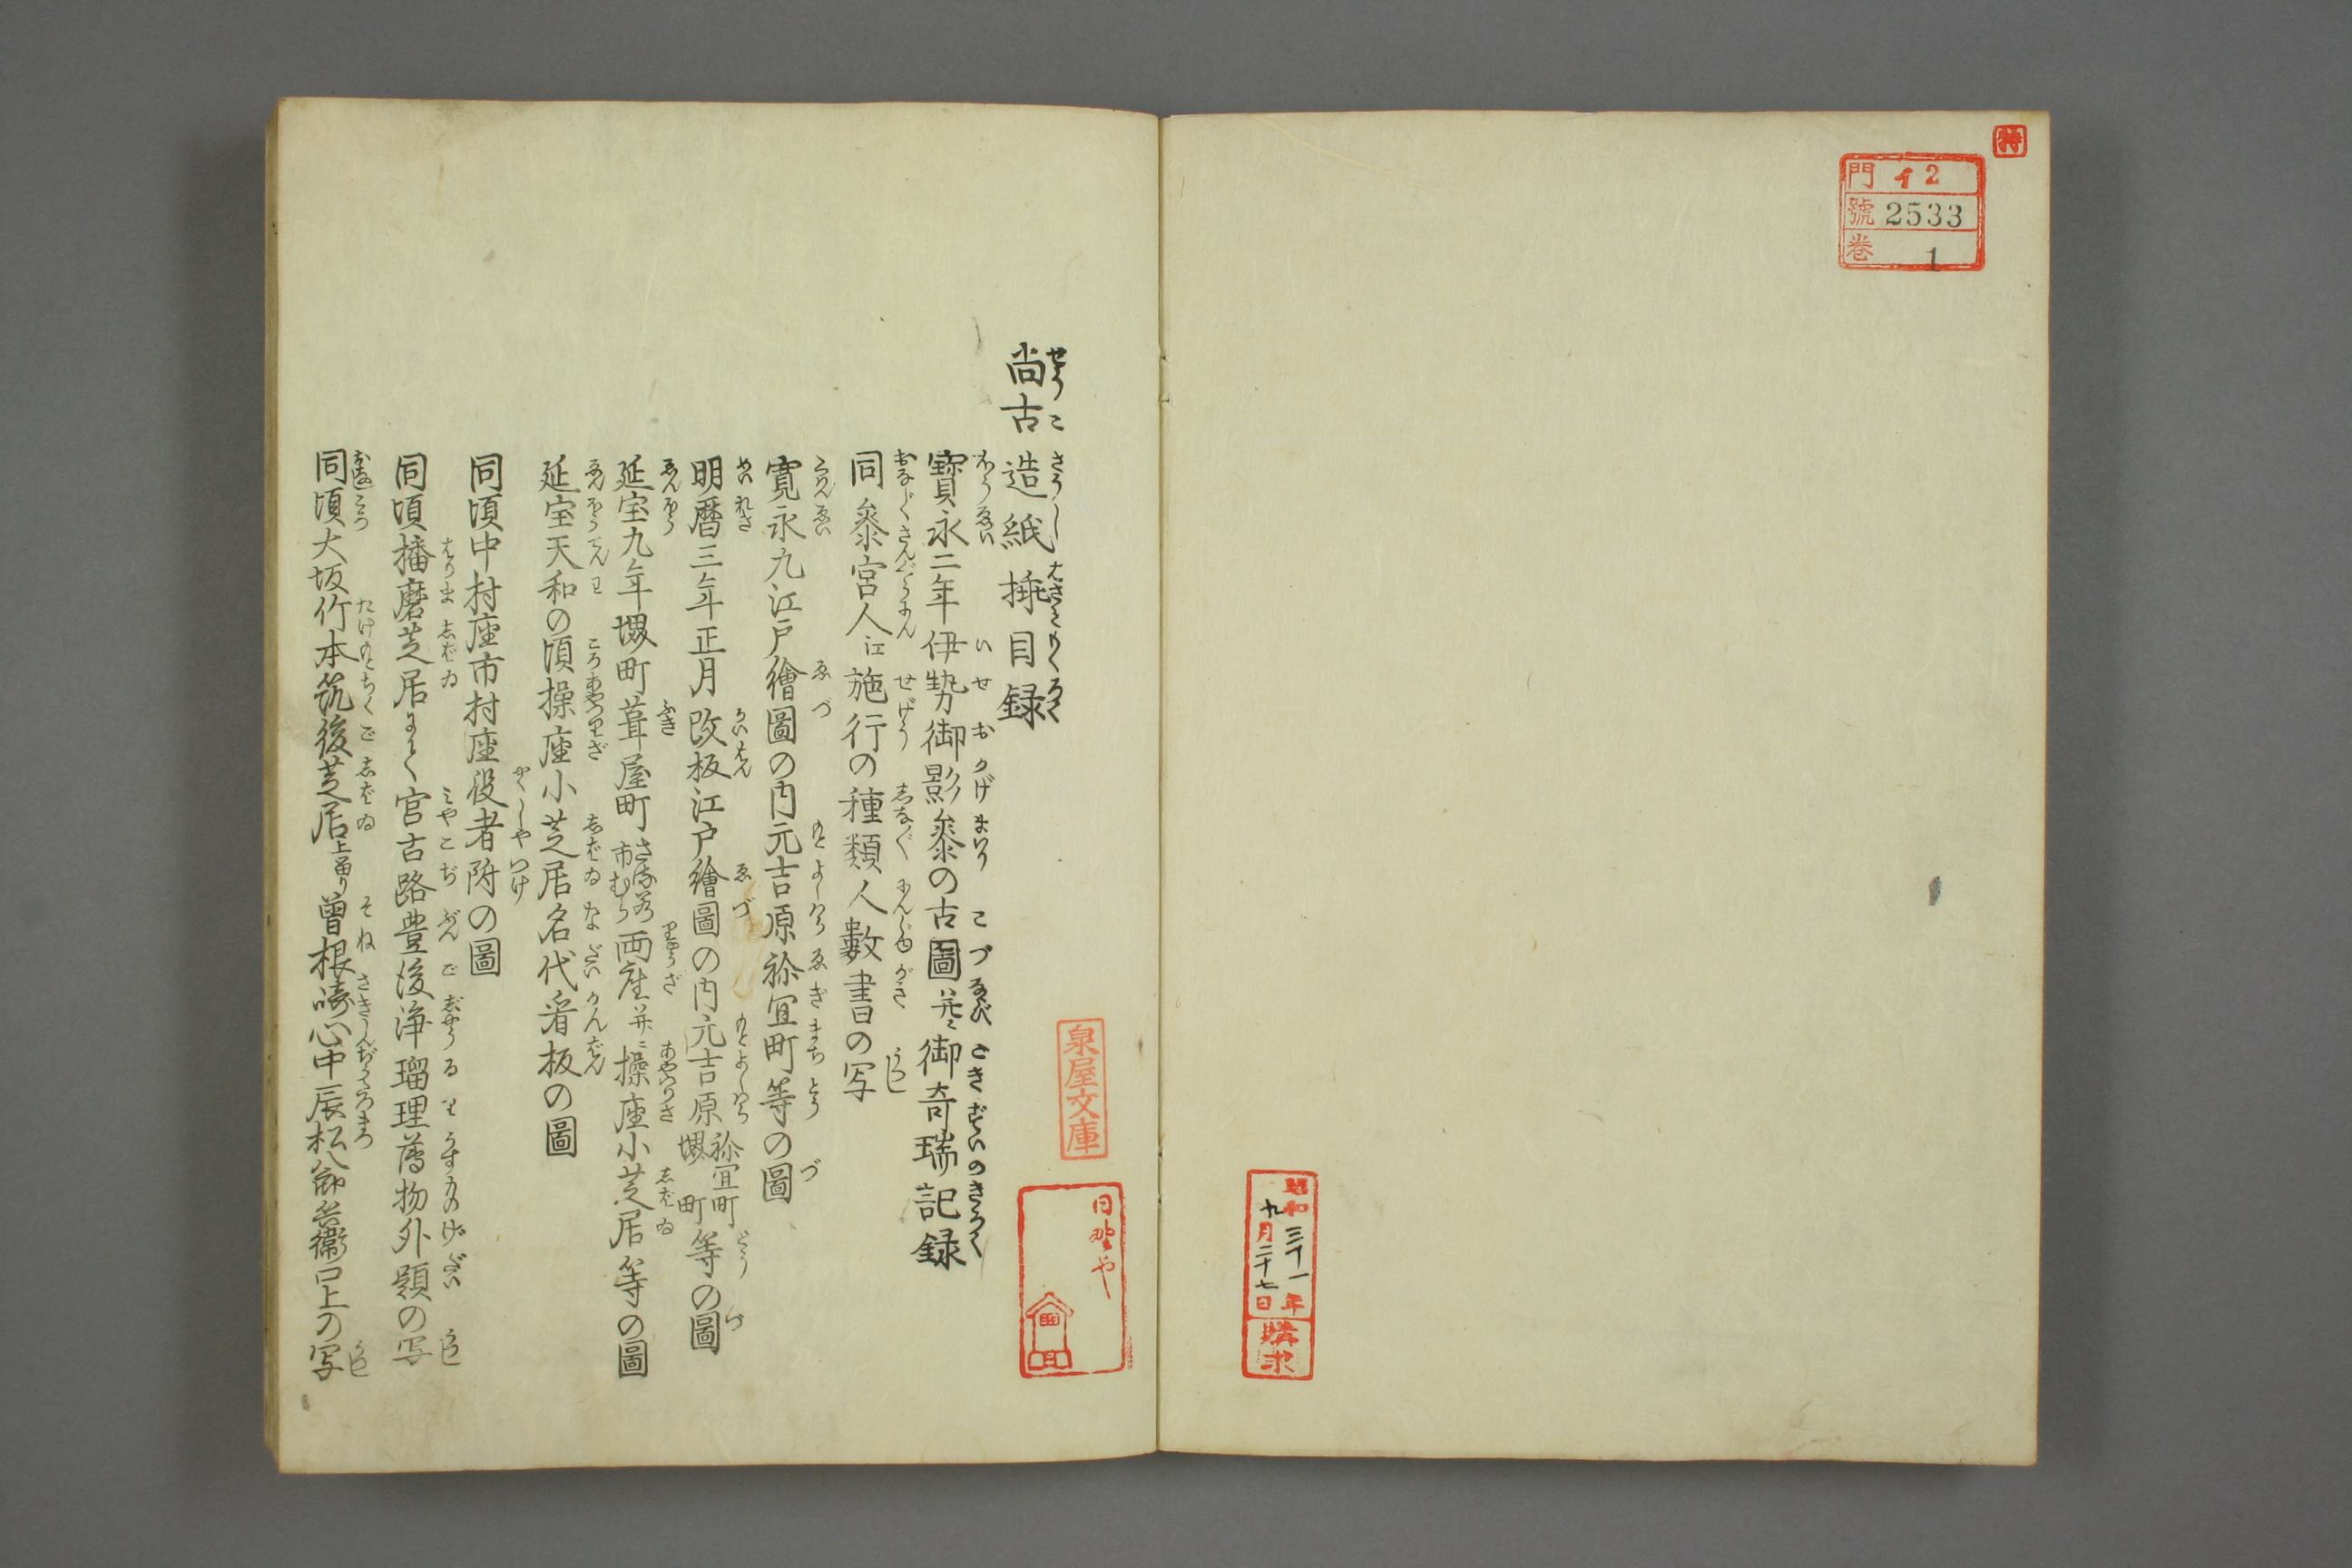 特
門 イ2
號 2533
巻 1
昭和三十一年
九月二十七日
購求
尚古造紙挿目録
寳永二年伊勢御影参の古圖并ニ御奇瑞記録
同参宮人江施行の種類人數書の写
寛永九江戸繪圖の内元吉原祢宜町等の圖
明暦三年正月改板江戸繪圖の内元吉原祢宜町堺町等の圖
延宝九年堺町葺屋町さる若市むら両座并ニ操座小芝居等の圖
延宝天和の頃操座小芝居名代看板の圖
同頃中村座市村座役者附の圖
同頃播磨芝居にて宮古路豊後浄瑠理薄物外題の写
同頃大坂竹本筑後芝居上るり曽根崎心中辰松八郎兵衛口上の写
泉屋文庫
日野や